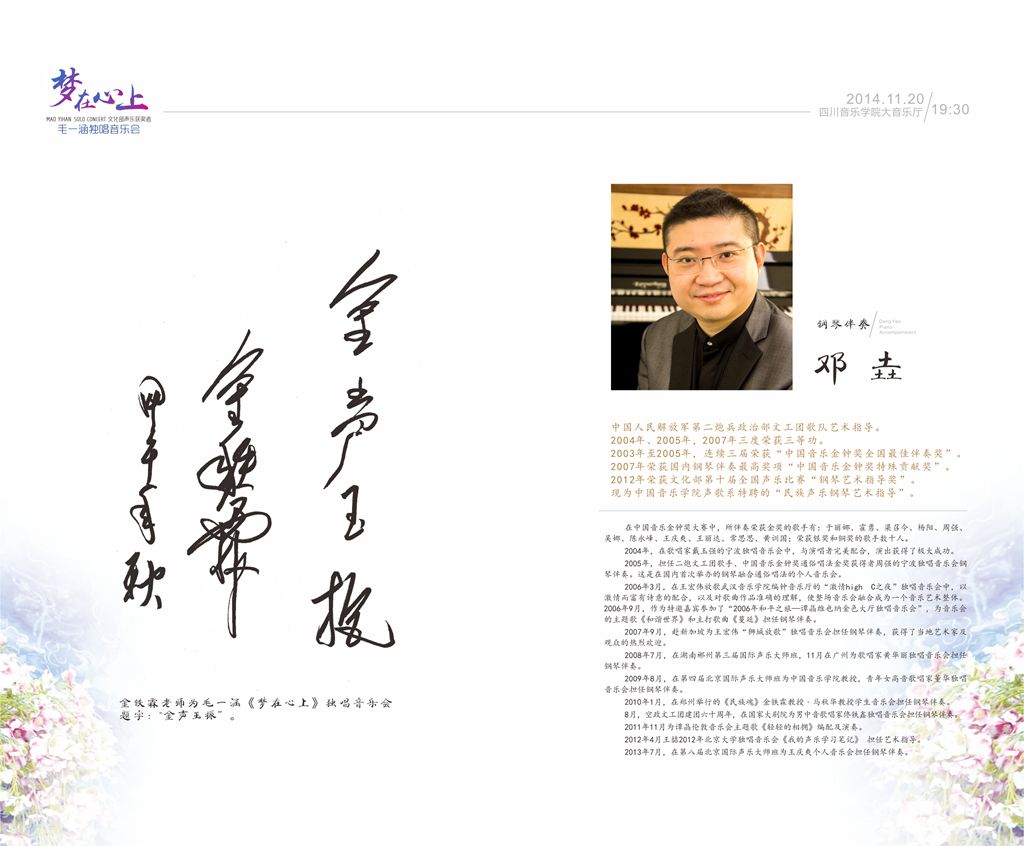 梦在心上
MAO YIHAN SOLO CONCERT 文化部声乐获奖者
毛一涵独唱音乐会
2014.11.20
四川音乐学院大音乐厅
19:30
金声玉振
金铁霖
甲午年秋
金铁霖老师为毛一涵《梦在心上》独唱音乐会
题字:“金声玉振”。
钢琴伴奏
Deng Yao
Piano
Accompaniment
邓 垚
中国人民解放军第二炮兵政治部文工团歌队艺术指导。
2004年、2005年，2007年三度荣获三等功。
2003年至2005年，连续三届荣获“中国音乐金钟奖全国最佳伴奏奖”。
2007年荣获国内钢琴伴奏最高奖项“中国音乐金钟奖特殊贡献奖”。
2012年荣获文化部第十届全国声乐比赛“钢琴艺术指导奖”。
现为中国音乐学院声歌系特聘的“民族声乐钢琴艺术指导”。
在中国音乐金钟奖大赛中，所伴奏荣获金奖的歌手有；于丽娜、霍勇、梁召今、杨阳、周强、
吴娜、陈永峰、王庆爽、王丽达、常思思、黄训国；荣获银奖和铜奖的歌手数十人。
2004年，在歌唱家戴玉强的宁波独唱音乐会中，与演唱者完美配合，演出获得了极大成功。
2005年，担任二炮文工团歌手、中国音乐金钟奖通俗唱法金奖获得者周强的宁波独唱音乐会钢
琴伴奏。这是在国内首次举办的钢琴融合通俗唱法的个人音乐会。
2006年3月，在王宏伟放歌武汉音乐学院编钟音乐厅的“激情high C之夜”独唱音乐会中，以
激情而富有诗意的配合，以及对歌曲作品准确的理解，使整场音乐会融合成为一个音乐艺术整体。
2006年9月，作为特邀嘉宾参加了“2006年和平之旅—谭晶维也纳金色大厅独唱音乐会”，为音乐会
的主题歌《和谐世界》和主打歌曲《蔓延》担任钢琴伴奏。
2007年9月，赴新加坡为王宏伟“狮城放歌”独唱音乐会担任钢琴伴奏，获得了当地艺术家及
观众的热烈欢迎。
2008年7月，在湖南郴州第三届国际声乐大师班，11月在广州为歌唱家黄华丽独唱音乐会担任
钢琴伴奏。
2009年8月，在第四届北京国际声乐大师班为中国音乐学院教授，青年女高音歌唱家董华独唱
音乐会担任钢琴伴奏。
2010年1月，在郑州举行的《民族魂》金铁霖教授·马秋华教授学生音乐会担任钢琴伴奏。
8月，空政文工团建团六十周年，在国家大剧院为男中音歌唱家佟铁鑫独唱音乐会担任钢琴伴奏。
2011年11月为谭晶伦敦音乐会主题歌《轻轻的相拥》编配及演奏。
2012年4月王喆2012年北京大学独唱音乐会《我的声乐学习笔记》 担任艺术指导。
2013年7月，在第八届北京国际声乐大师班为王庆爽个人音乐会担任钢琴伴奏。